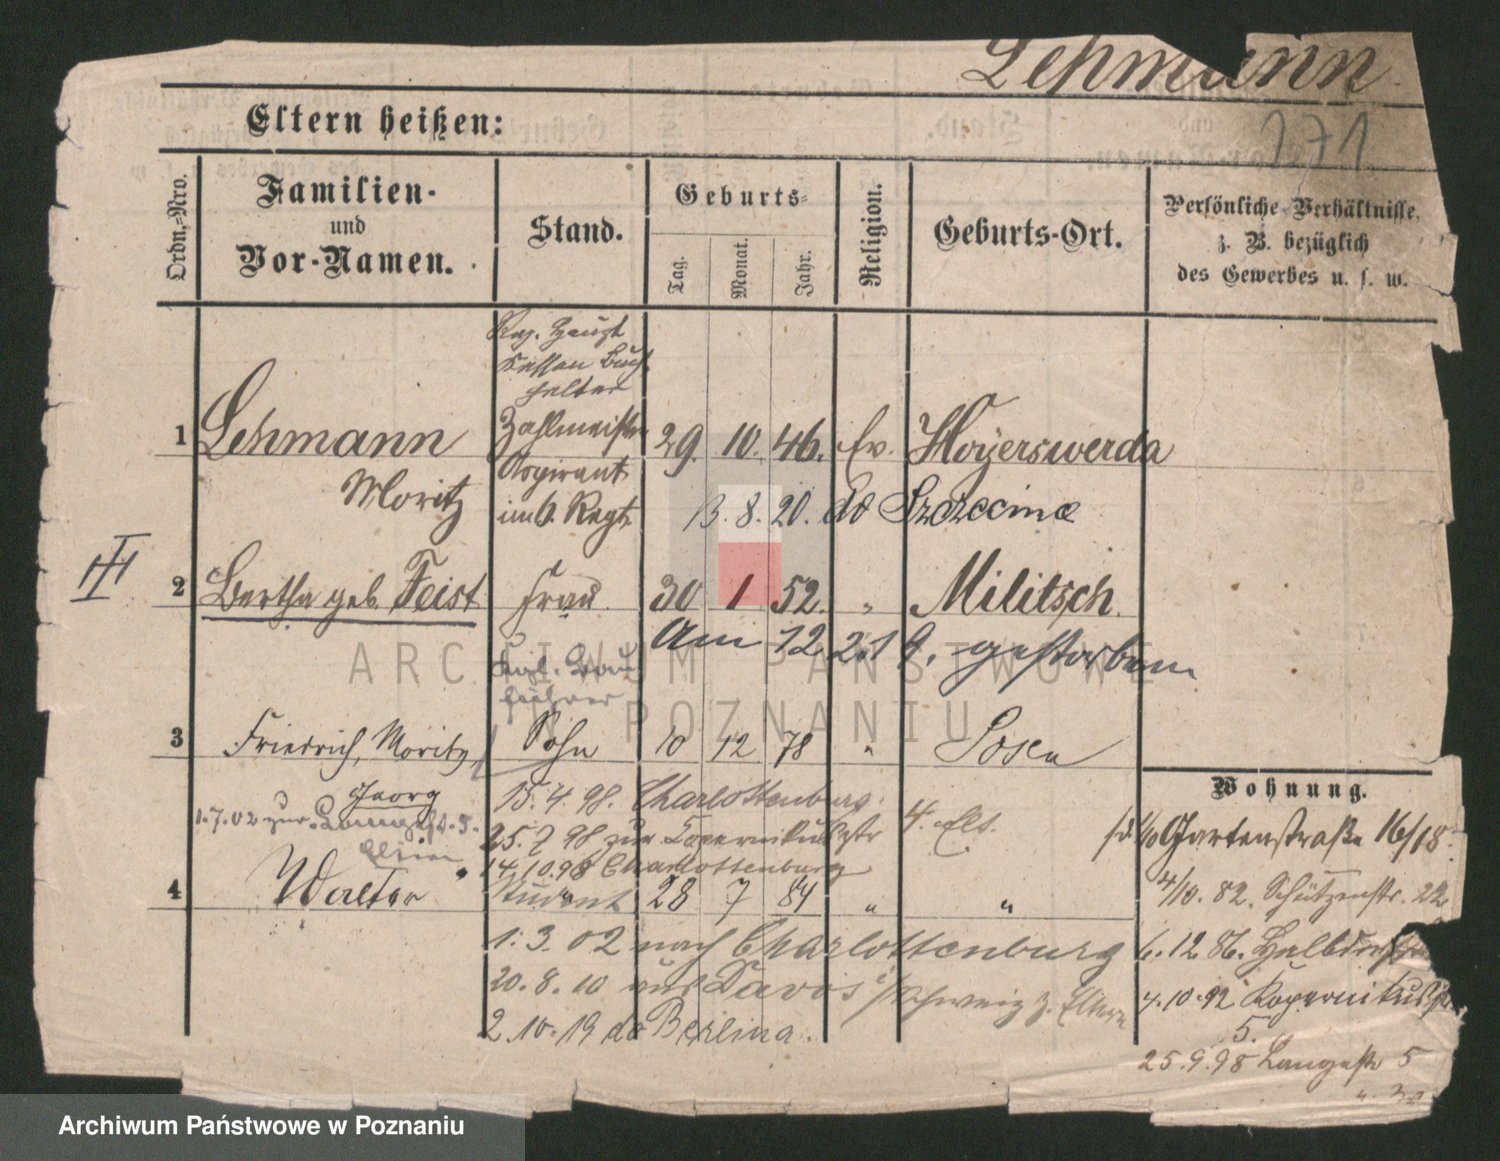 Lehmann
171
Eltern heißen:
Ordn.-Nro.
Familien-
und
Vor-Namen.
Stand.
Geburts-
Tag.
Monat.
Jahr.
Religion.
Geburts-Ort.
Persönliche Verhältnisse,
z. B. bezüglich
des Gewerbes u. s. w.
Reg. Haupt
Kassen Buch
halter
1 Lehmann Zahlmeister 29. 10. 46. Ev. Hoyerswerda
Moritz Aspirant
im 6. Regt. 13. 8. 20. do Szczecina
III
2 Bertha geb. Feist Frau 30 1 52. " Militsch.
Am 12 2. 19. gestorben
führer
3 Friedrich, Moritz, Sohn 10 12 78 " Posen
Georg
15. 4. 98. Charlottenburg.
1.7.02 zur
25. 7 98 zur Kopernikusstr
4. Elt.
Eltern
14.10.98 Charlottenburg
4 Walter Student 28 7 84 " "
1. 3. 02 nach Charlottenburg
20. 8. 10 aus Davos /Schweiz z. Eltern
2. 10. 19 do Berlina.
Wohnung.
Gartenstraße 16/18
4/10. 82. Schützenstr. 22
6. 12. 86. Halbdorfstr
4. 10. 92 Kopernikusstr
5.
25. 9. 98 Langestr 5
ARCHIWUM PAŃSTWOWE
W POZNANIU
Archiwum Państwowe w Poznaniu